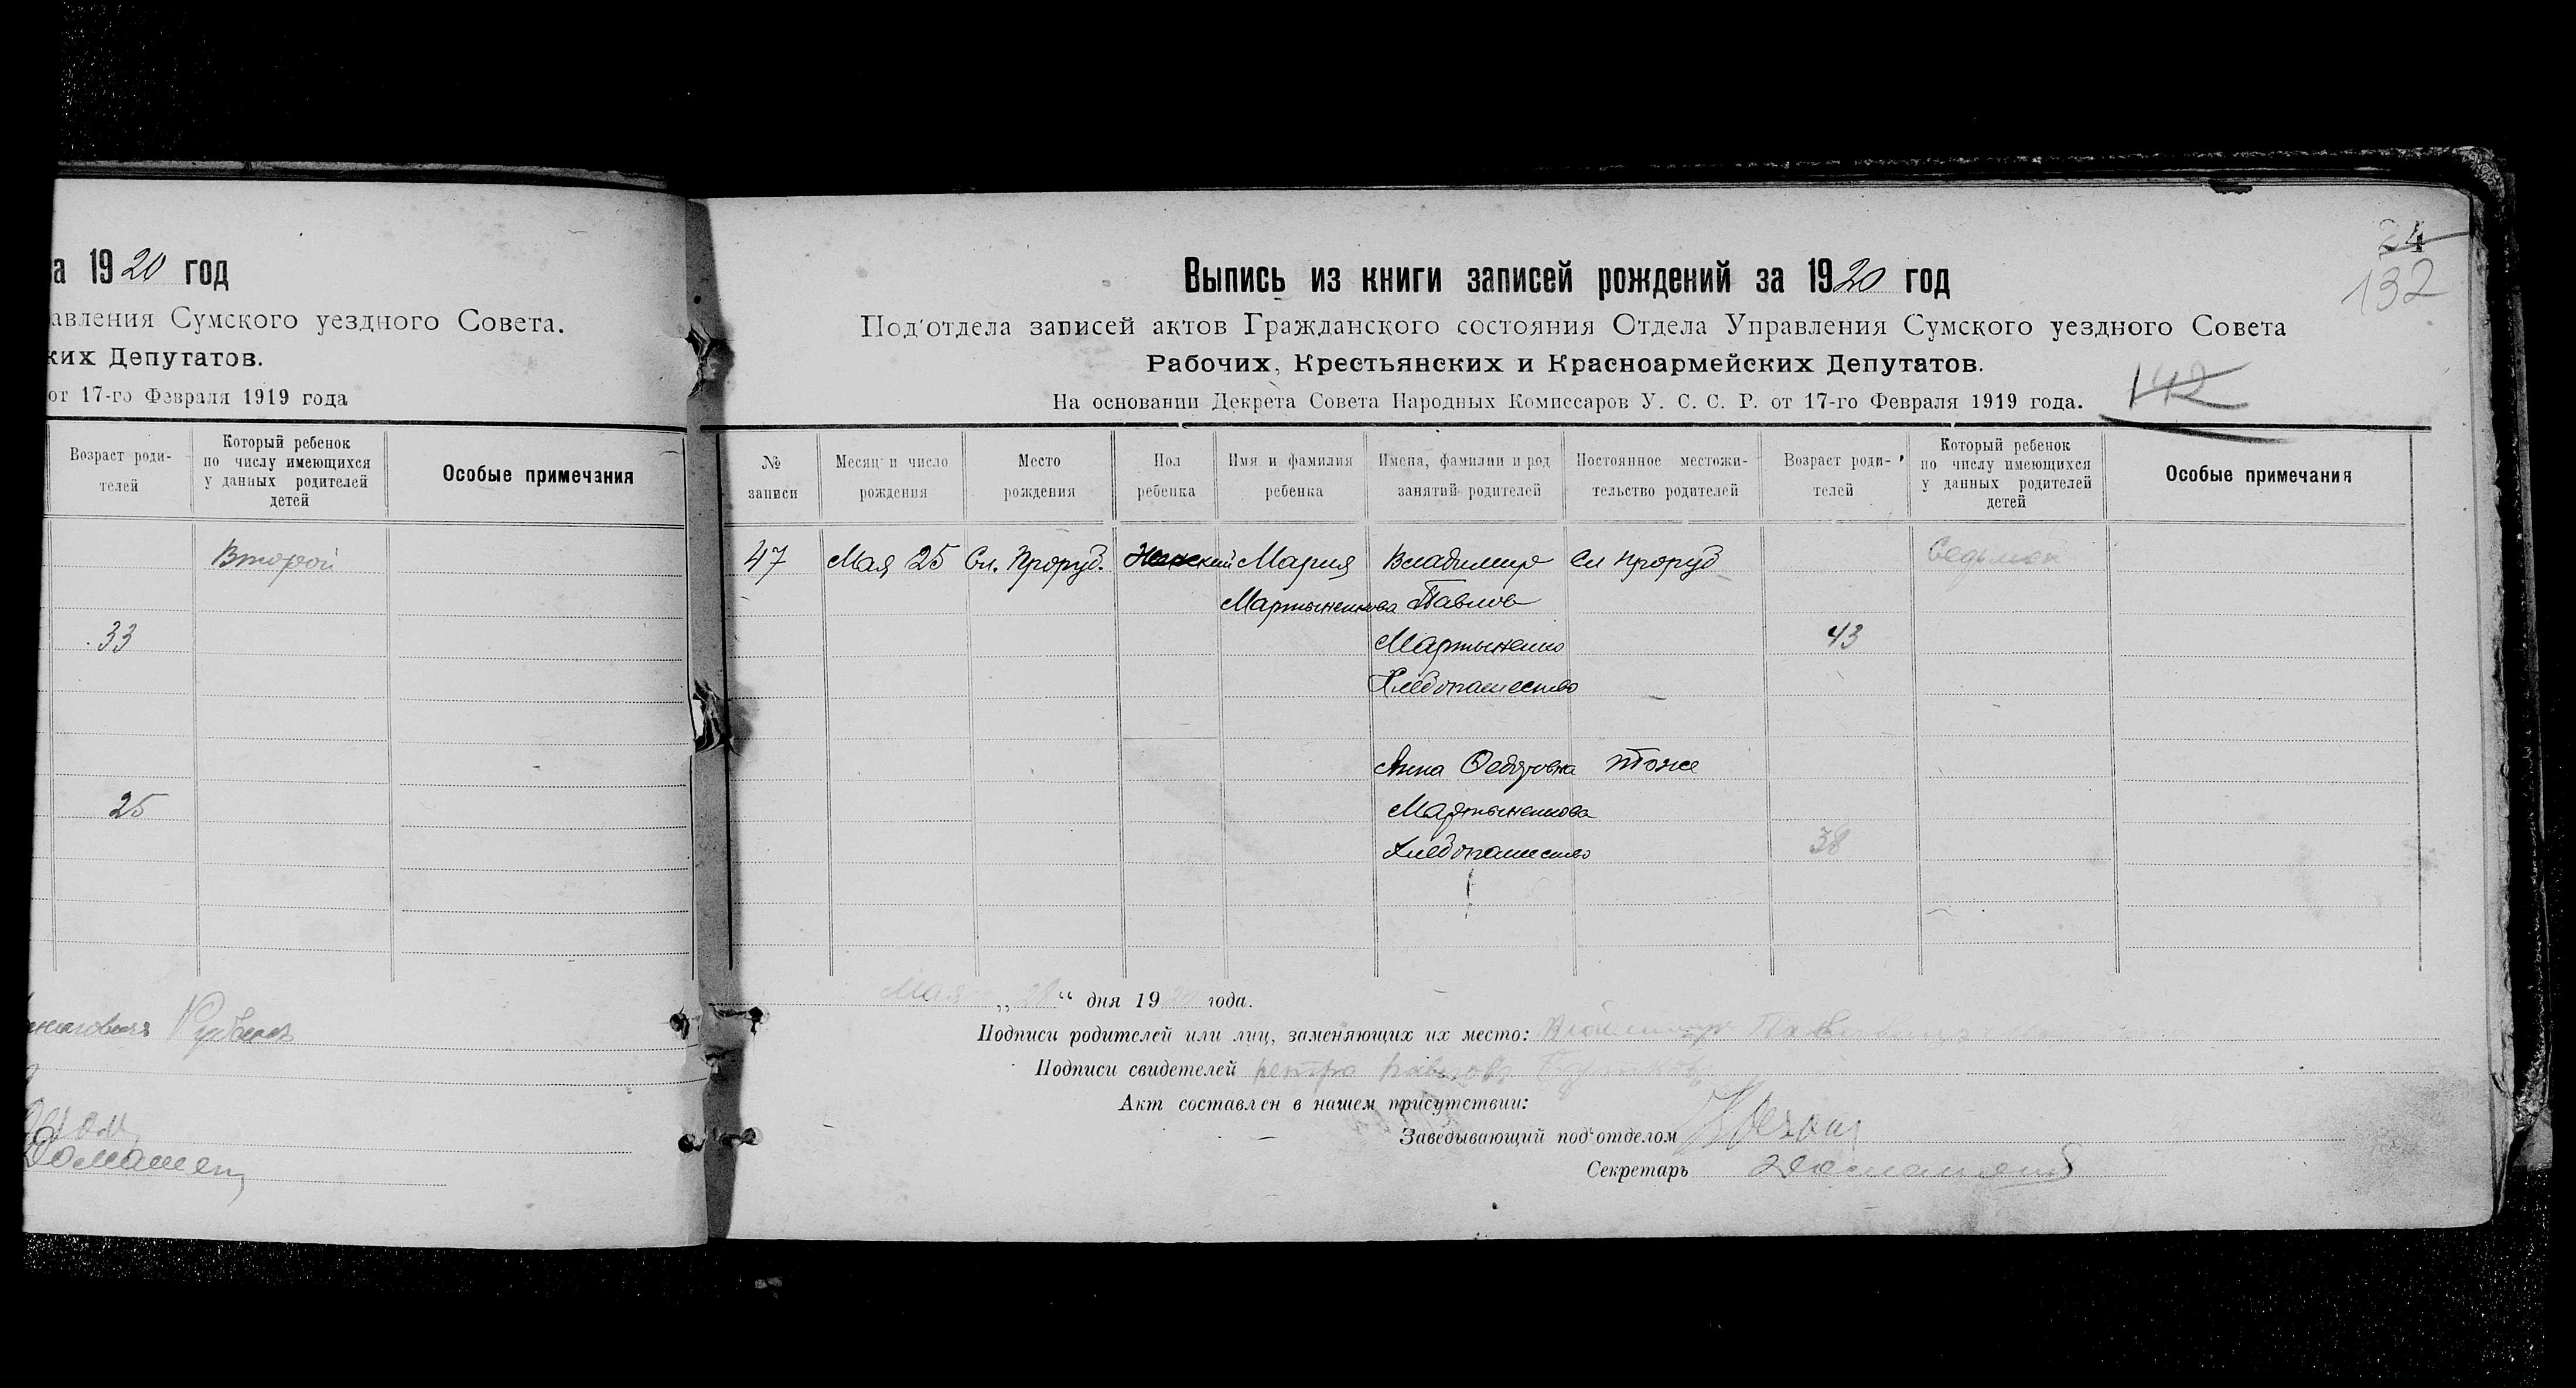 а 1920 год
авления Сумского уездного Совета.
ких Депутатов.
от 17-го Февраля 1919 года
Возраст роди-
телей
Который ребенок
по числу имеющихся
у данных родителей
детей
Особые примечания
Второй
33
25
24
132
Выпись из книги записей рождений за 1920 год
Под'отдела записей актов Гражданского состояния Отдела Управления Сумского уездного Совета
Рабочих, Крестьянских и Красноармейских Депутатов.
142
На основании Декрета Совета Народных Комиссаров У. С. С. Р. от 17-го Февраля 1919 года.
№
записи
Месяц и число
рождения
Место
рождения
Пол
ребенка
Имя и фамилия
ребенка
Имена, фамилии и род
занятий родителей
Постоянное местожи-
тельство родителей
Возраст роди-
телей
Который ребенок
по числу имеющихся
у данных родителей
детей
Особые примечания
47 Мая 25 Сл. Проруб. Женский Мария Владимир Сл Проруб Седьмой
Мартыненкова Павлов
Мартыненко 43
Хлебопашество
Анна Федоровна тоже
Мартыненкова
Хлебопашество 38
Мая „28“ дня 1920 года.
Подписи родителей или лиц, заменяющих их место: Владимир
Подписи свидетелей
Акт составлен в нашем присутствии:
Заведывающий под'отделом
Секретарь